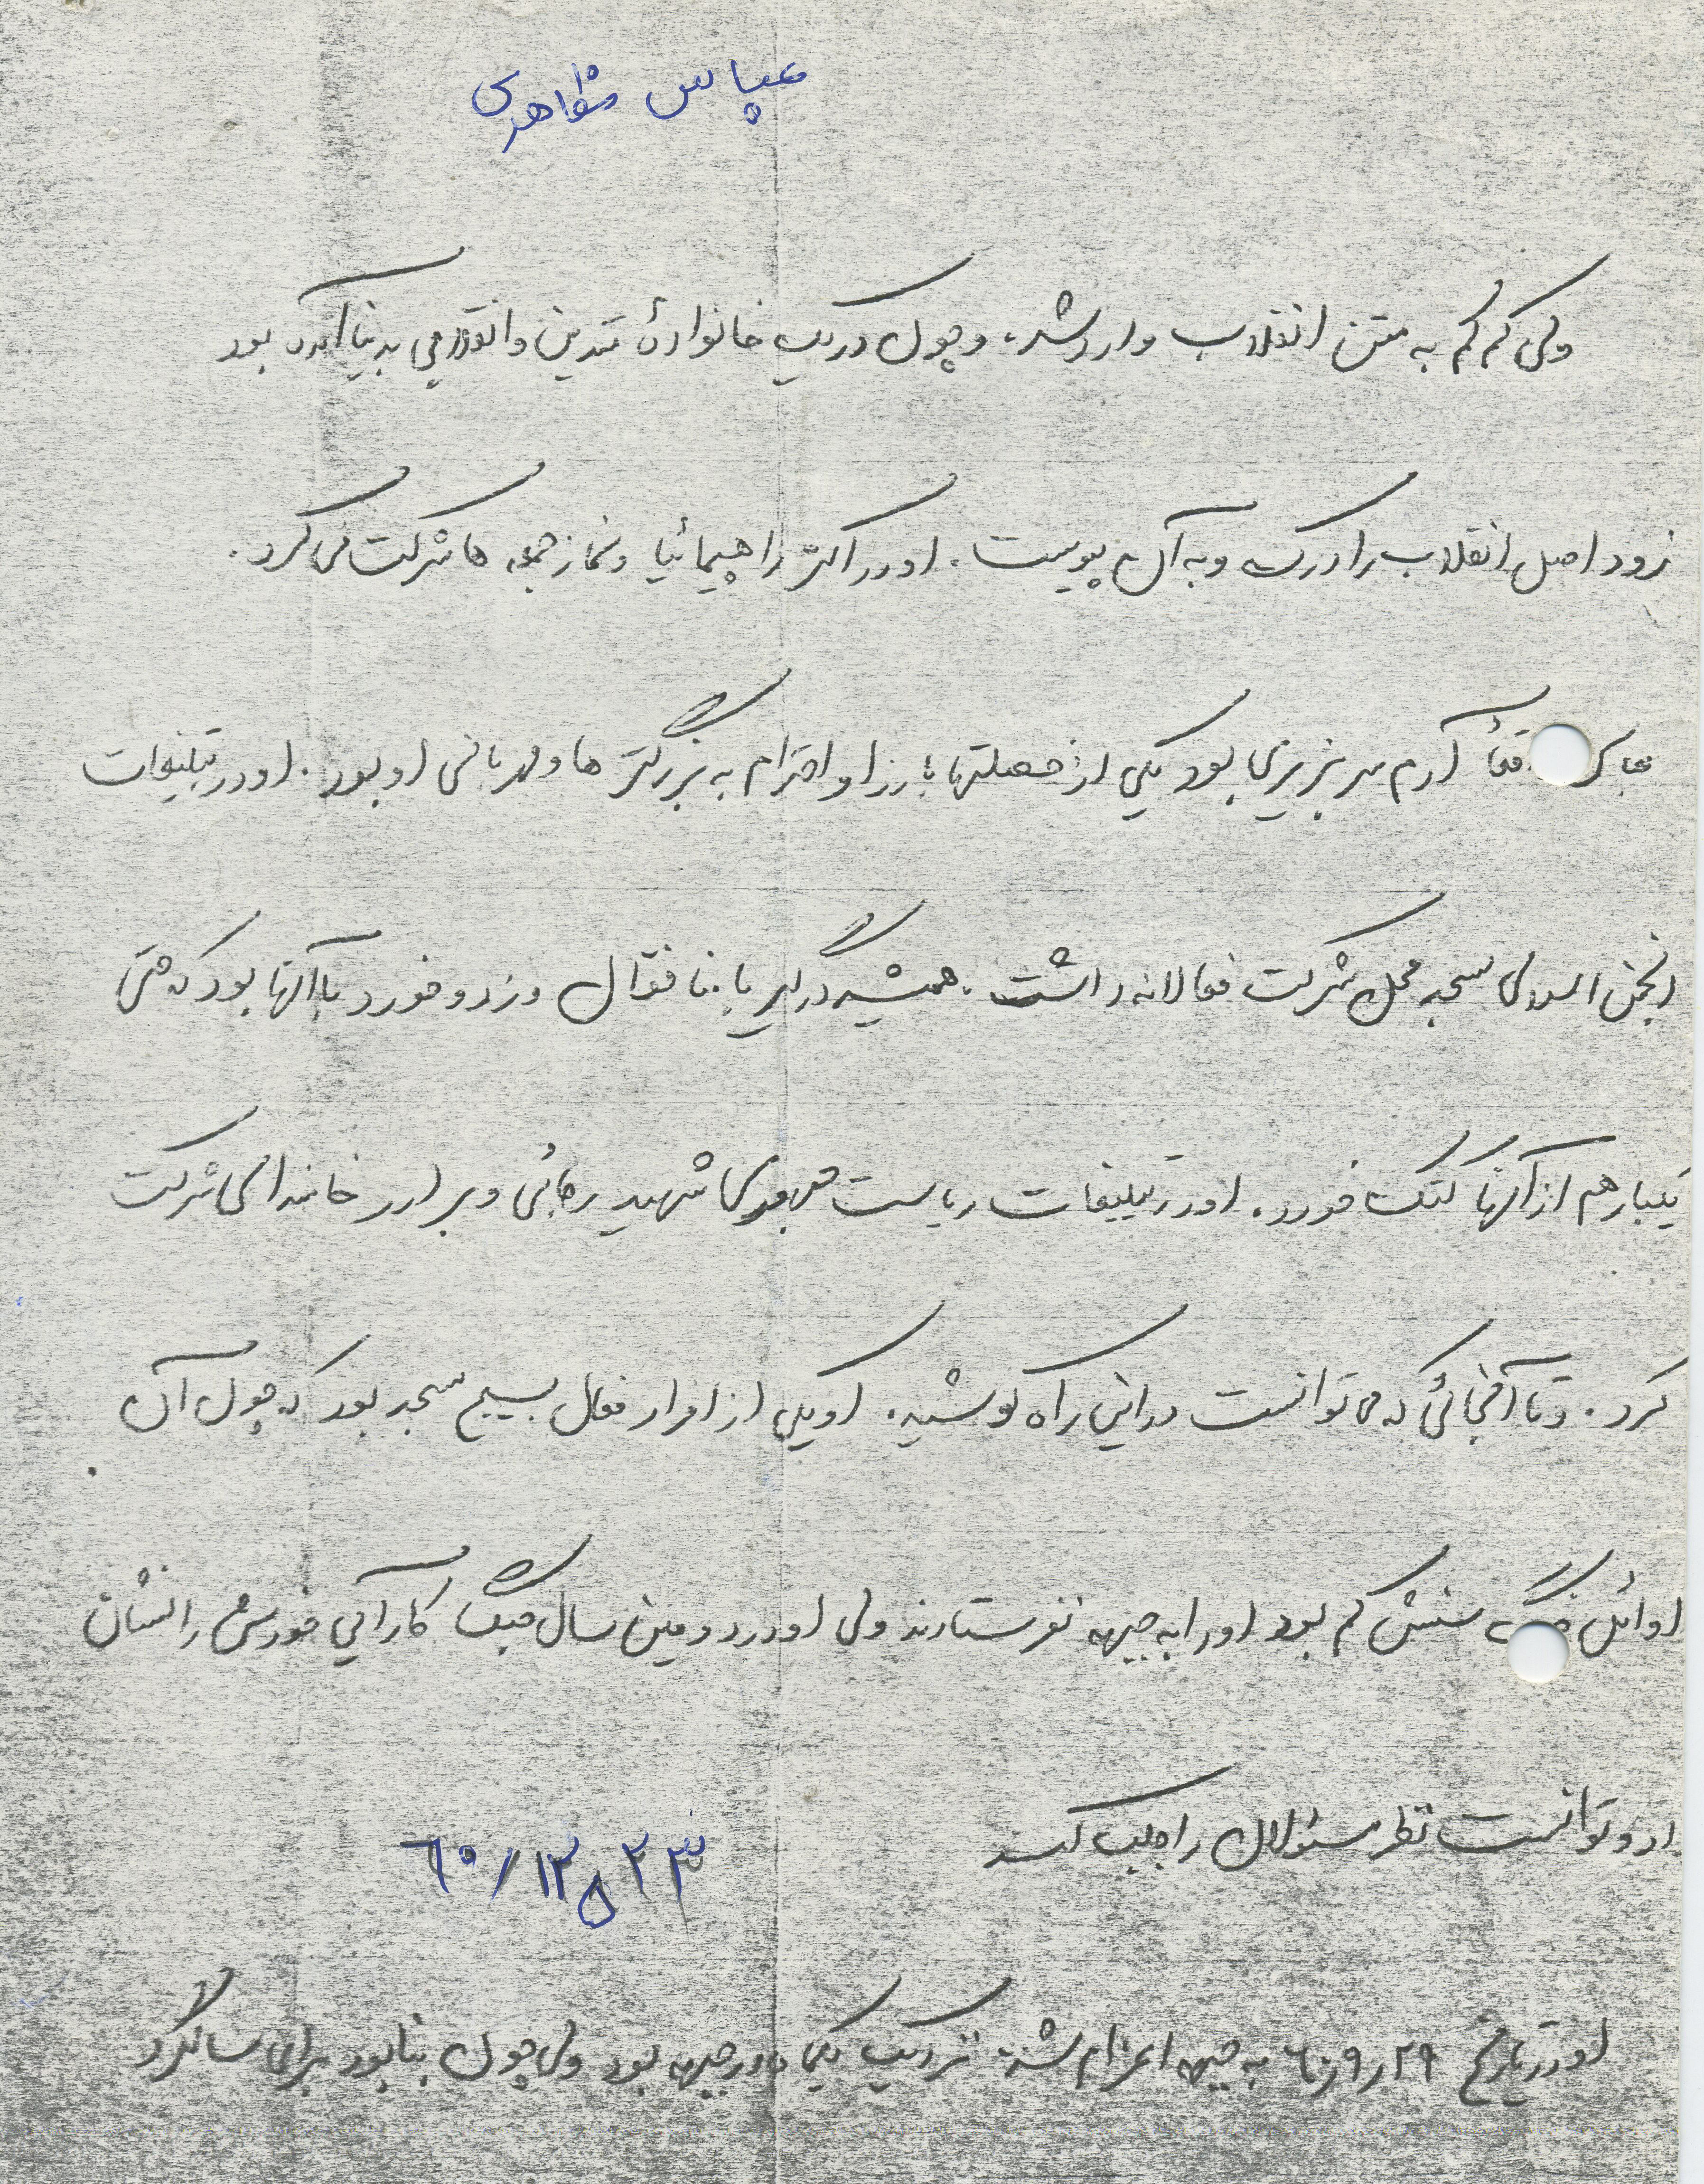 عباس مظاهری
ولی کم کم به متن انقلاب وارد شد، و چون در یک خانوادهٔ متدین و انقلابی بدنیا آمده بود
زود اصل انقلاب را درک و به آن پیوست. او در اکثر راهپیمائیا و نماز جمعه ها شرکت می کرد.
آدم سر بزیری بود یکی از خصلتهای بارز او احترام به بزرگتر ها و مهربانی او بود. او در تبلیغات
انجمن اسلامی مسجد محل شرکت فعالانه داشت. همیشه درگیر با منافقان و زد و خورد با آنها بود که حتی
یکبار هم از آنها کتک خورد. او در تبلیغات ریاست جمهوری شهید رجائی و برادر خامنه‌ای شرکت
کرد. و تا آنجائی که می توانست در این راه کوشید. او یکی از افراد فعال بسیج مسجد بود که چون آن
اوائل جنگ سنش کم بود او را به جبهه نفرستادند ولی او در دومین سال جنگ کارآئی خودش را نشان
داد و توانست نظر مسئولان را جلب کند
۶۰/۱۲ ۲۳
او در تاریخ ۶۰٫۹٫۲۹ به جبهه اعزام شد نزدیک یکی در جبهه بود ولی چون بنا بود برای سالگرد